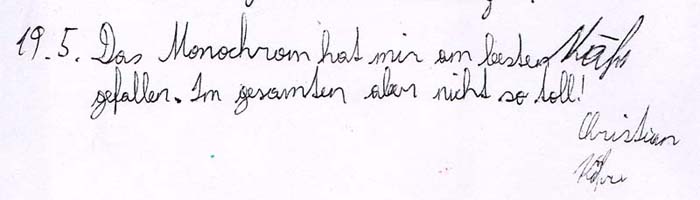 19.5. Das Monochrom hat mir am besten
gefallen. Im gesamten aber nicht so toll!
Christian